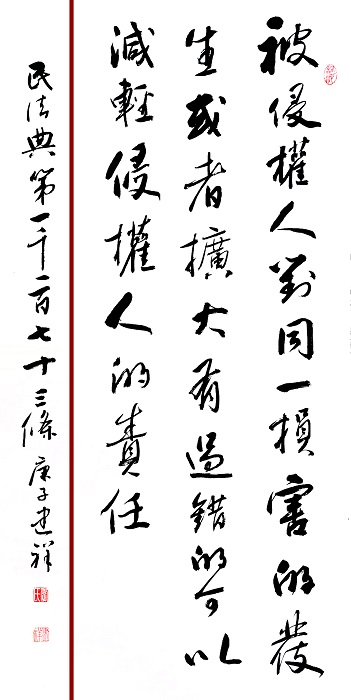 被侵權人對同一損害的發
生或者擴大有過錯的可以
減輕侵權人的責任
民法典第一千一百七十三條 庚子建祥